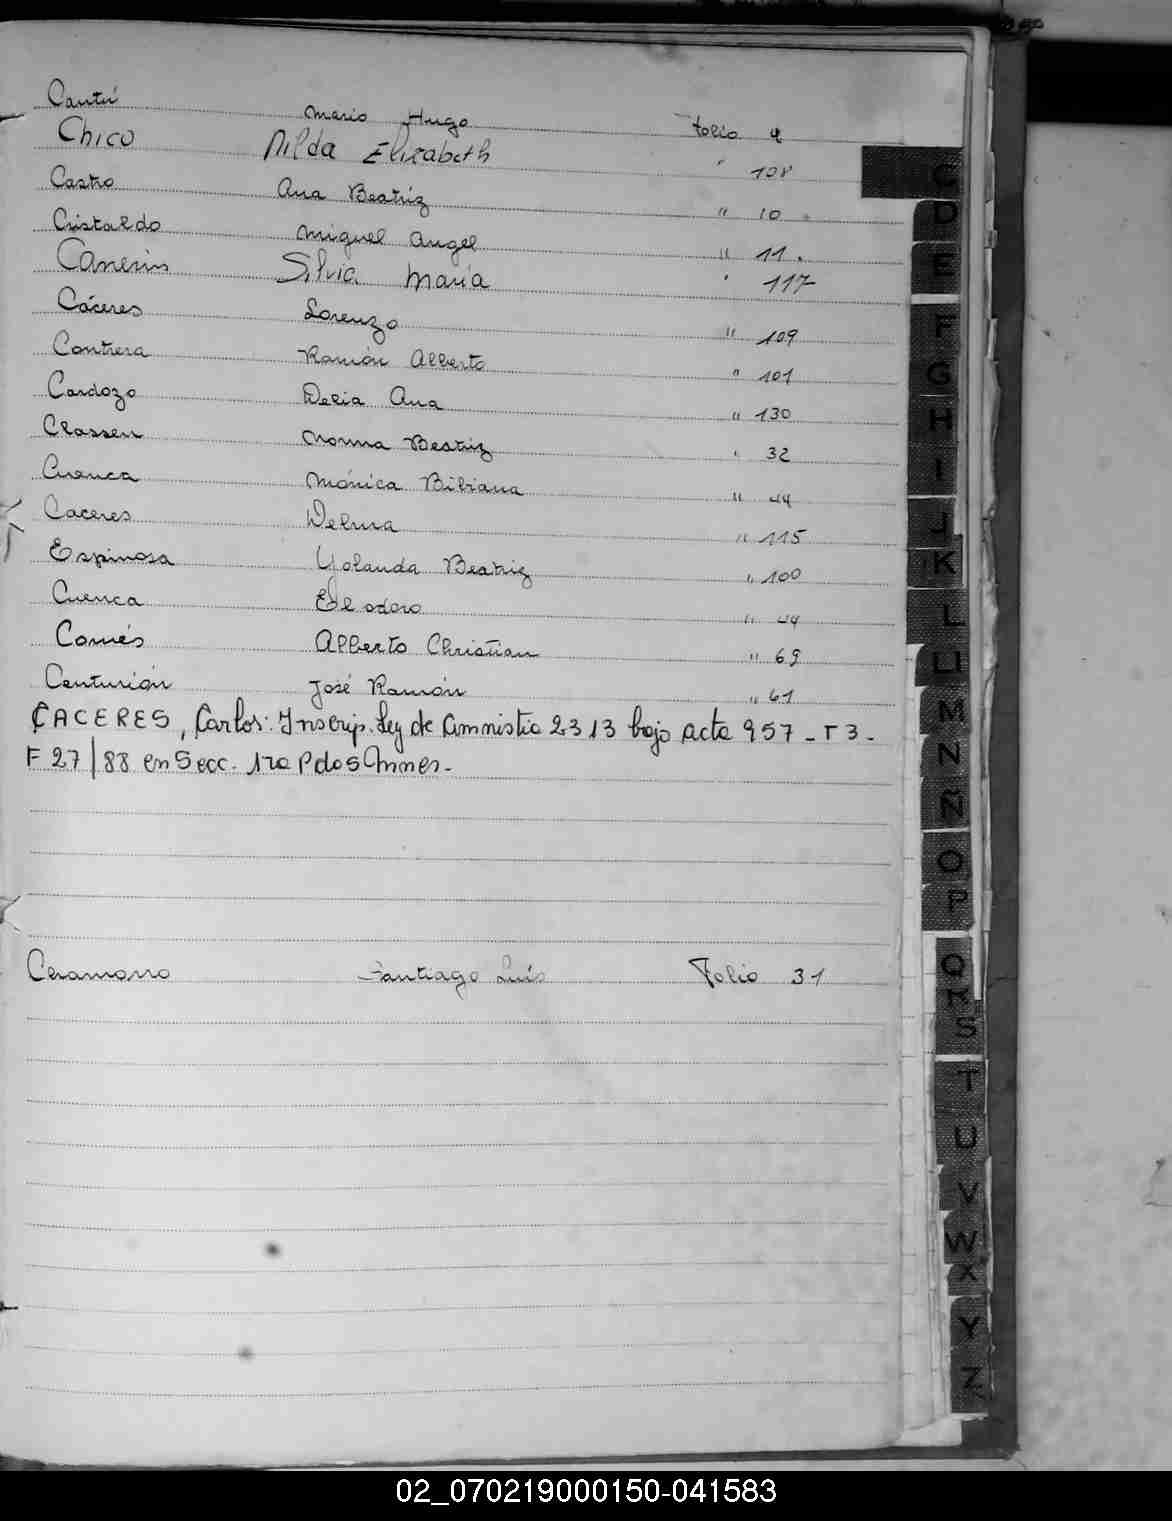 Cantú Mario Hugo Folio 9
Chico Nilda Elizabeth " 108
Castro Ana Beatriz " 10
Cristaldo Miguel Angel " 11
Silvia Maria " 117
Cáceres Lorenzo " 109
Contrera Ramón Alberto " 101
Cardozo Delia Ana " 130
Classen Norma Beatriz " 32
Cuenca Mónica Bibiana " 44
Caceres Delma " 115
Espinosa Yolanda Beatriz " 100
Cuenca Eleodoro " 44
Comés Alberto Christian " 69
Centurión José Ramón " 61
CACERES, Carlos: Inscrip. Ley de Amnistia 2313 bajo acta 957 - T 3 -
F 27/88 en Secc. 1ra Pdos
Ceramorro Santiago Luis Folio 31
C
D
E
F
G
H
I
J
K
L
LL
M
N
Ñ
O
P
Q
R
S
T
U
V
W
X
Y
Z
02_070219000150-041583